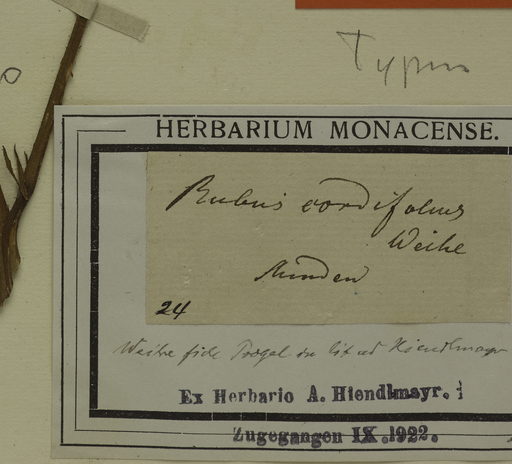 Typus
HERBARIUM MONACENSE.
Rubus cordifolius
Weihe
Minden
24
Weihe fide Progel in lit ad Hiendlmayr
Ex Herbario A. Hiendlmayr.
Zugegangen IX.1922.